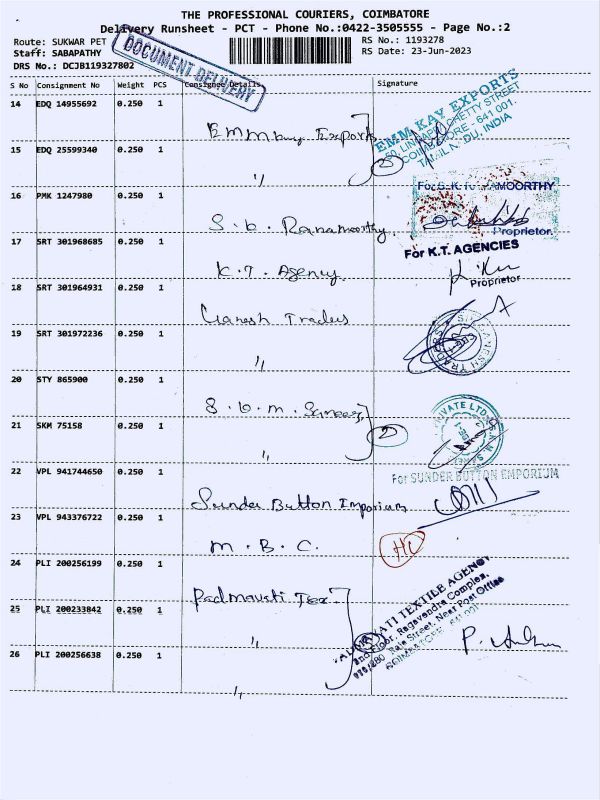 THE PROFESSIONAL COURIERS, COIMBATORE
Delivery Runsheet - PCT - Phone No.:0422-3505555 - Page No.:2
Route: SUKWAR PET
RS No.: 1193278
Staff: SABAPATHY
RS Date: 23-Jun-2023
DRS No.: DCJB119327802
DOCUMENT DELIVERY
S No Consignment No Weight PCS Consignee Details Signature
14 EDQ 14955692 0.250 1
Emmkay Exports
EMM KAY EXPORTS
CHETTY STREET
COIMBATORE - 641 001.
TAMIL NADU, INDIA
15 EDQ 25599340 0.250 1
"
2
16 PMK 1247980 0.250 1
S. b. Ramamoorthy
RAMAMOORTHY
Proprietor.
17 SRT 301968685 0.250 1
K. T. Agency
For K.T. AGENCIES
Proprietor
18 SRT 301964931 0.250 1
Ganesh Traders
19 SRT 301972236 0.250 1
"
20 STY 865900 0.250 1
21 SKM 75158 0.250 1
"
2
PRIVATE LTD
22 VPL 941744650 0.250 1
Sunder Button Imporium
For SUNDER BUTTON EMPORIUM
23 VPL 943376722 0.250 1
M. B. C.
24 PLI 200256199 0.250 1
Padmavati Tex
25 PLI 200233842 0.250 1
"
TEXTILE AGENCY
2nd Floor, Ragavendra Complex,
Raja Street, Near Post Office
COIMBATORE - 641 001
26 PLI 200256638 0.250 1
"